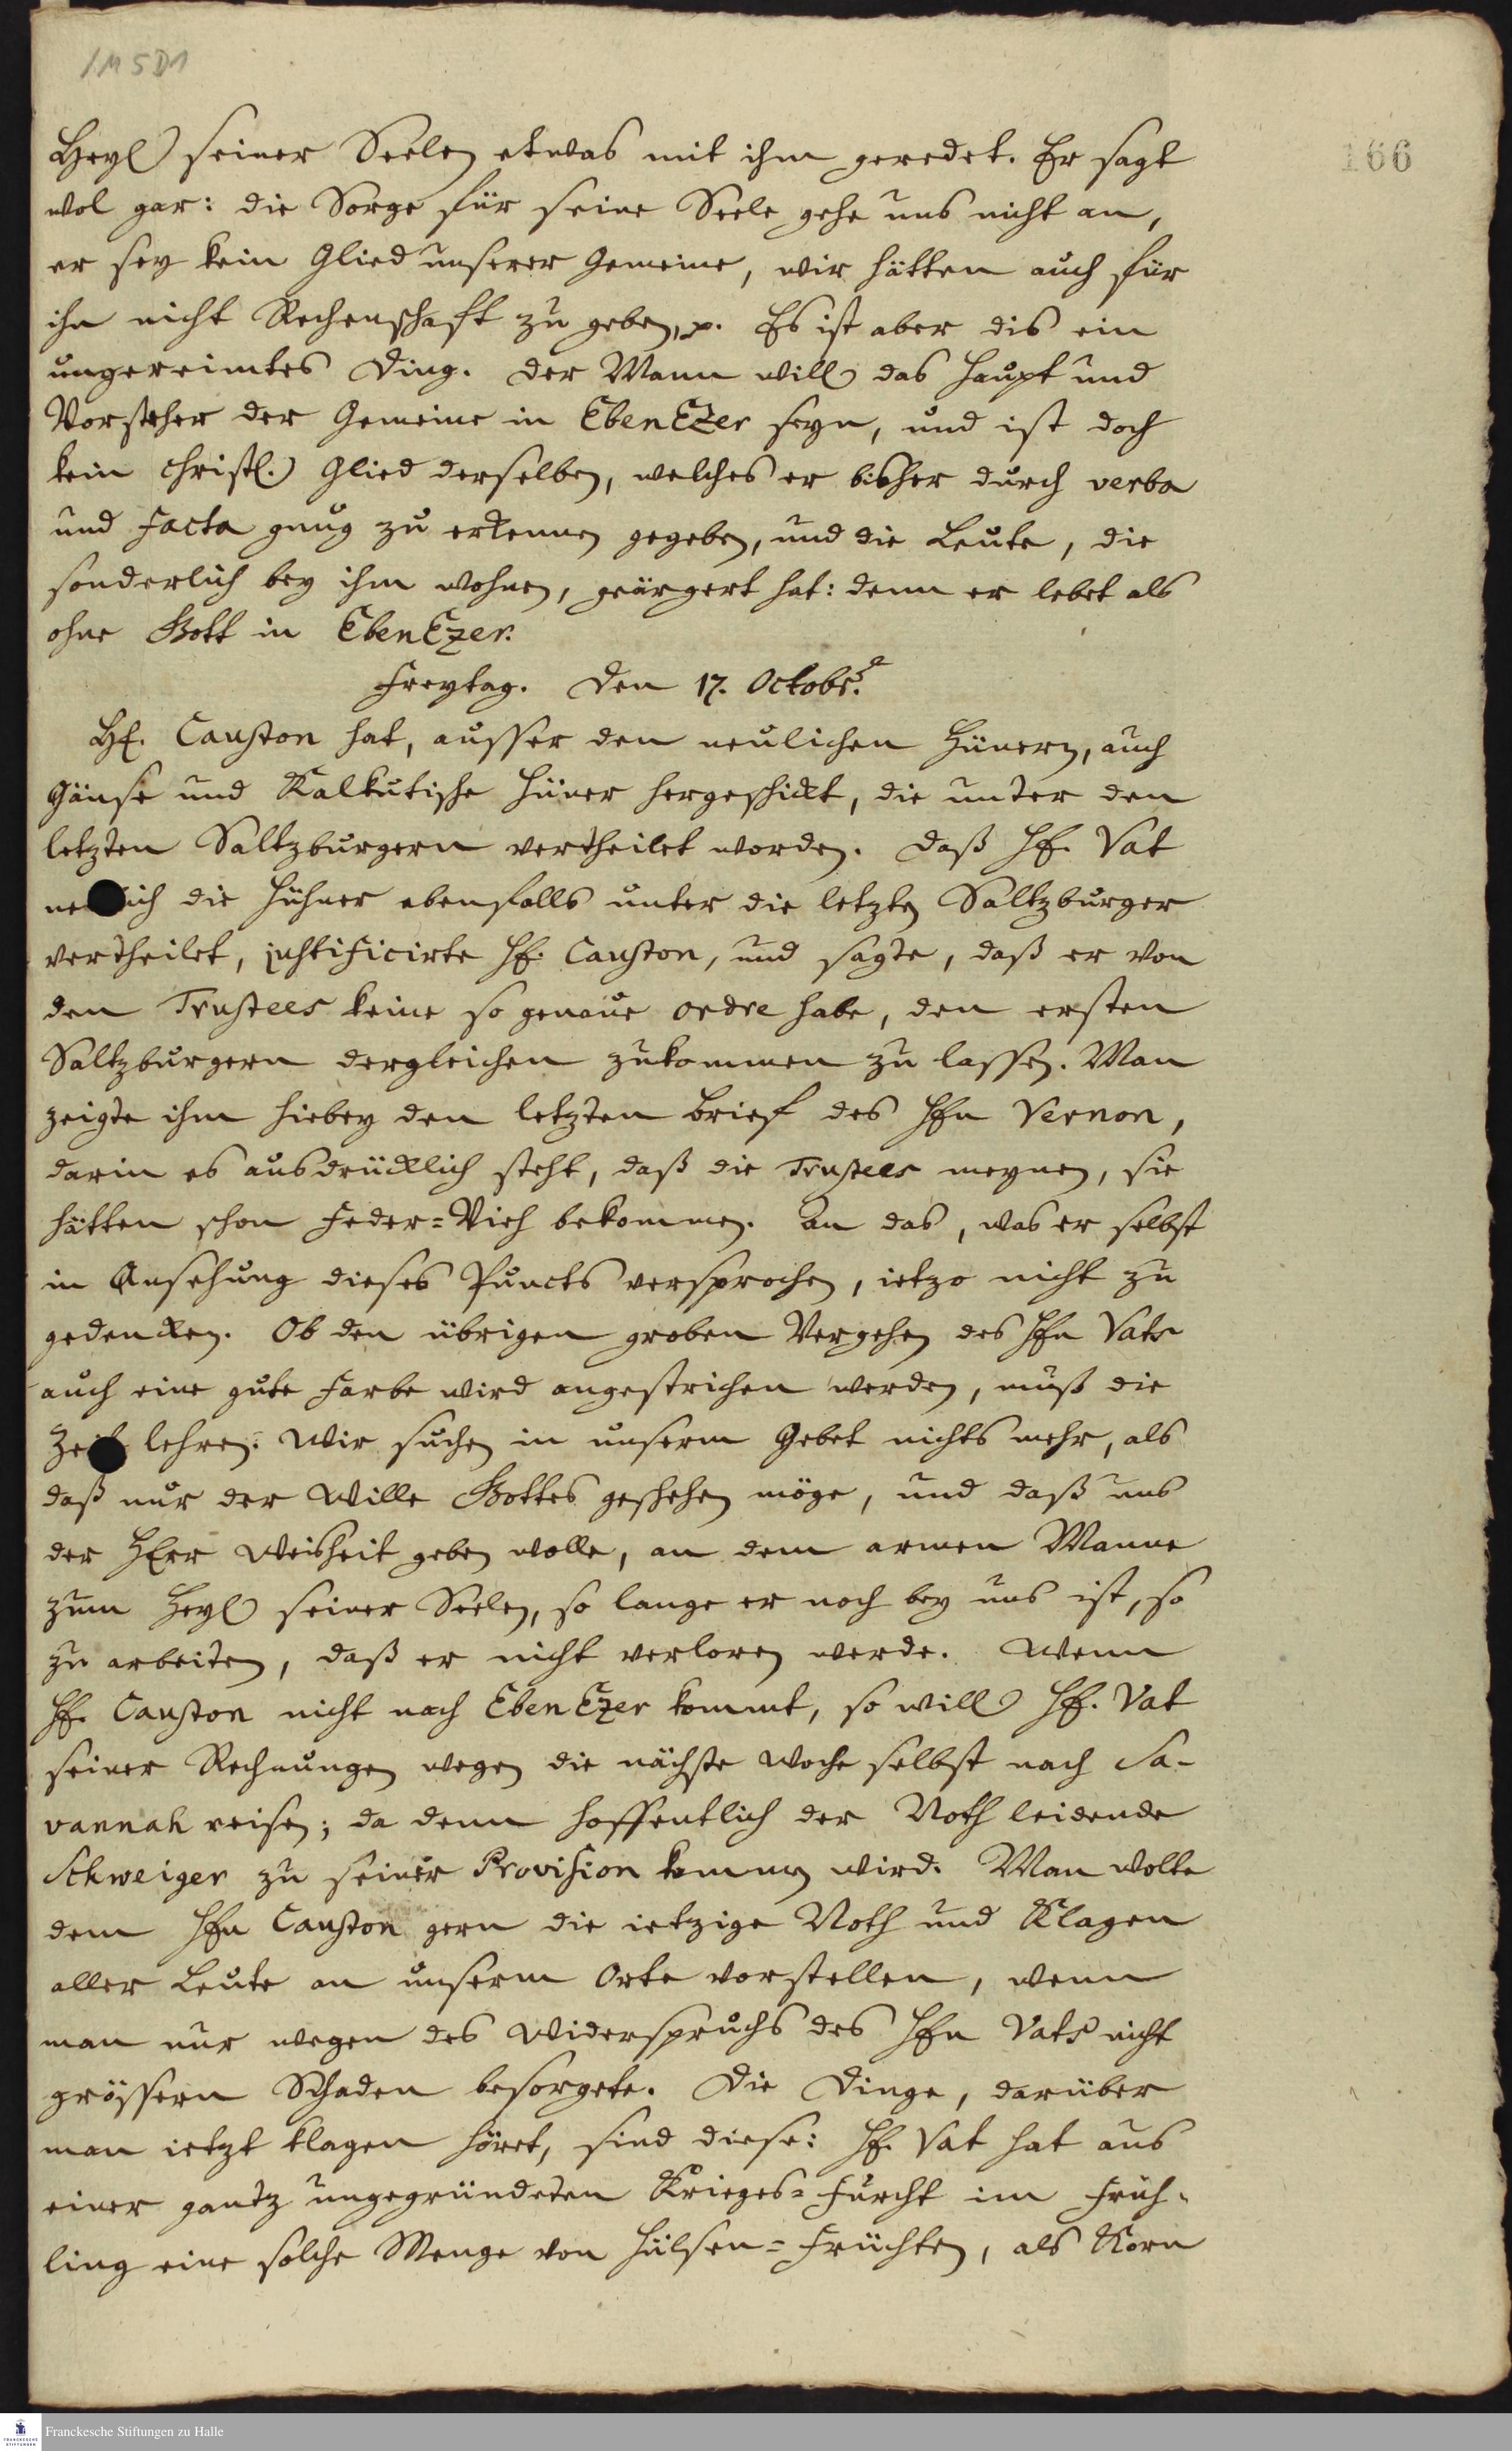 1M 5D1
166
Heyl seiner Seelen etwas mit ihm geredet. Er sagt
wol gar: die Sorge für seine Seele gehe uns nicht an,
er sey kein Glied unserer Gemeine, wir hätten auch für
ihn nicht Rechenschaft zu geben, p. Es ist aber dis ein
ungereimtes Ding. Der Mann will das Haupt und
Vorsteher der Gemeine in EbenEzer seyn, und ist doch
kein christl. Glied derselben, welches er bisher durch verba
und facta gnug zu erkennen gegeben, und die Leute, die
sonderlich bey ihm wohnen, geärgert hat: denn er lebet als
ohne Gott in EbenEzer.
Freytag. Den 17. Octobr.
Hr. Causton hat, ausser den neulichen Hünern, auch
Gänse und Kalkutische Hüner hergeschickt, die unter den
letzten Saltzburgern vertheilet worden. Daß Hr. Vat
ne lich die Hühner ebenfalls unter die letzten Saltzburger
vertheilet, justificirte Hr. Causton, und sagte, daß er von
den Trustees keine so genaue ordre habe, den ersten
Saltzburgern dergleichen zukommen zu lassen. Man
zeigte ihm hiebey den letzten Brief des Hrn Vernon,
darin es ausdrücklich steht, daß die Trustees meynen, sie
hätten schon Feder=Vieh bekommen. An das, was er selbst
in Ansehung dieses Puncts versprochen, ietzo nicht zu
gedencken. Ob den übrigen groben Vergehen des Hrn Vats
auch eine gute Farbe wird angestrichen werden, muß die
Zeit lehren. Wir suchen in unserm Gebet nichts mehr, als
daß nur der Wille Gottes geschehen möge, und daß uns
der HErr Weisheit geben wolle, an dem armen Manne
zum Heyl seiner Seelen, so lange er noch bey uns ist, so
zu arbeiten, daß er nicht verloren werde. Wenn
Hr. Causton nicht nach EbenEzer kommt, so will Hr. Vat
seiner Rechnungen wegen die nächste Woche selbst nach Sa-
vannah reisen; da denn hoffentlich der Noth leidende
Schweiger zu seiner Provision kommen wird. Man wolte
dem Hrn Causton gern die ietzige Noth und Klagen
aller Leute an unserm Orte vorstellen, wenn
man nur wegen des Widerspruchs des Hrn Vats nicht
grössern Schaden besorgete. Die Dinge, darüber
man ietzt klagen höret, sind diese: Hr. Vat hat aus
einer gantz ungegründeten Krieges=Furcht im Früh-
ling eine solche Menge von Hülsen=Früchten, als Korn
Franckesche Stiftungen zu Halle